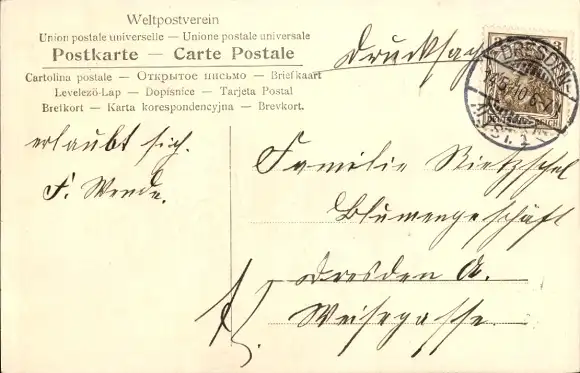 Weltpostverein
Union postale universelle — Unione postale universale
Postkarte — Carte Postale
Cartolina postale — Открытое письмо — Briefkaart
Levelező-Lap — Dopisnice — Tarjeta Postal
Brefkort — Karta korespondencyjna — Brevkort.
Drucksache
3 3
DEUTSCHES REICH
DRESDEN-
ALTST. 1
erlaubt sich.
F. Wende.
Familie Rietzschel
Blumengeschäft
Dresden A.
Weisegasse.